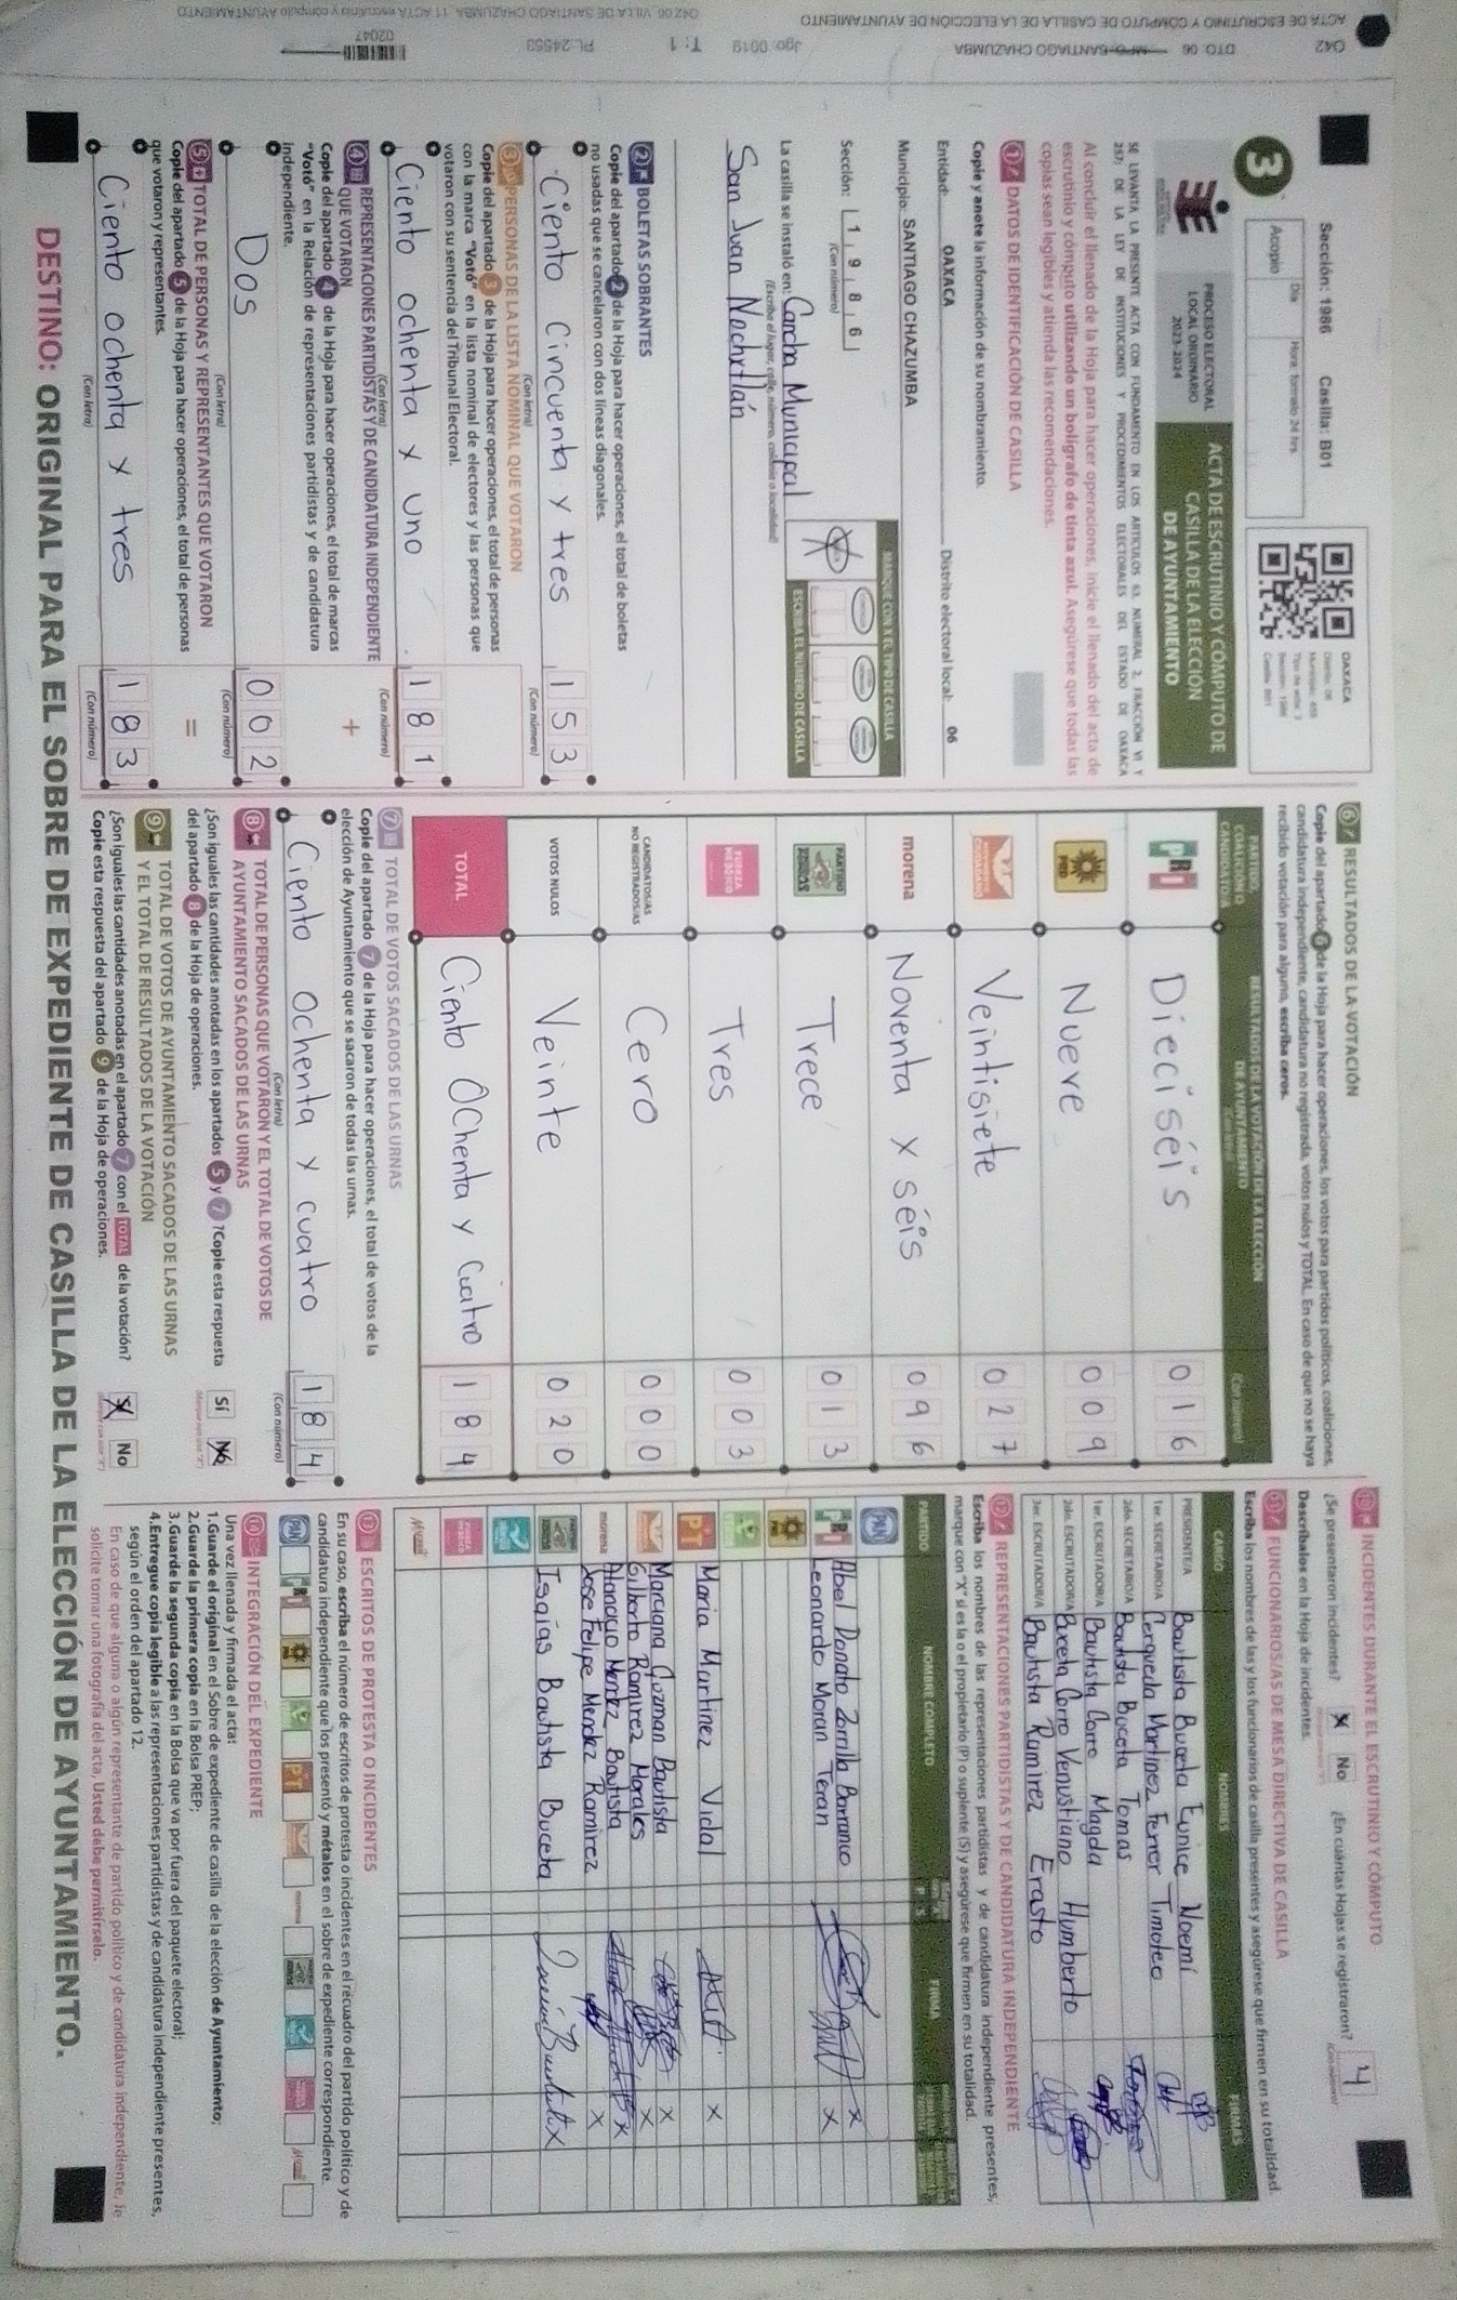 Sección: 1986 Casilla: B01
3
Acopio
Día
Hora, formato 24 hrs
OAXACA
PROCESO ELECTORAL
LOCAL ORDINARIO
2023-2024
ACTA DE ESCRUTINIO Y CÓMPUTO DE
CASILLA DE LA ELECCIÓN
DE AYUNTAMIENTO
SE LEVANTA LA PRESENTE ACTA CON FUNDAMENTO EN LOS ARTÍCULOS 63, NUMERAL 2, FRACCIÓN VI Y
257; DE LA LEY DE INSTITUCIONES Y PROCEDIMIENTOS ELECTORALES DEL ESTADO DE OAXACA
Al concluir el llenado de la Hoja para hacer operaciones, inicie el llenado del acta de
escrutinio y cómputo utilizando un bolígrafo de tinta azul. Asegúrese que todas las
copias sean legibles y atienda las recomendaciones.
1 DATOS DE IDENTIFICACIÓN DE CASILLA
Copie y anote la información de su nombramiento.
Entidad: OAXACA Distrito electoral local: 06
Municipio: SANTIAGO CHAZUMBA
Sección: 1 9 8 6
(Con número)
MARQUE CON X EL TIPO DE CASILLA
ESCRIBA EL NÚMERO DE CASILLA
La casilla se instaló en: Cancha Municipal
(Escriba el lugar, calle, número, colonia o localidad)
San Juan Nochixtlán
2 BOLETAS SOBRANTES
Copie del apartado 2 de la Hoja para hacer operaciones, el total de boletas
no usadas que se cancelaron con dos líneas diagonales.
Ciento cincuenta y tres 153
(Con letra) (Con número)
3 PERSONAS DE LA LISTA NOMINAL QUE VOTARON
Copie del apartado 3 de la Hoja para hacer operaciones, el total de personas
con la marca "Votó" en la lista nominal de electores y las personas que
votaron con su sentencia del Tribunal Electoral.
Ciento ochenta y uno 181
(Con letra) (Con número)
4 REPRESENTACIONES PARTIDISTAS Y DE CANDIDATURA INDEPENDIENTE
QUE VOTARON
+
Copie del apartado 4 de la Hoja para hacer operaciones, el total de marcas
"Votó" en la Relación de representaciones partidistas y de candidatura
independiente.
Dos 002
(Con letra) (Con número)
5 TOTAL DE PERSONAS Y REPRESENTANTES QUE VOTARON
=
Copie del apartado 5 de la Hoja para hacer operaciones, el total de personas
que votaron y representantes.
Ciento ochenta y tres 183
(Con letra) (Con número)
6 RESULTADOS DE LA VOTACIÓN
Copie del apartado 6 de la Hoja para hacer operaciones, los votos para partidos políticos, coaliciones,
candidatura independiente, candidatura no registrada, votos nulos y TOTAL. En caso de que no se haya
recibido votación para alguno, escriba ceros.
PARTIDO, COALICIÓN O CANDIDATO/A
RESULTADOS DE LA VOTACIÓN DE LA ELECCIÓN
DE AYUNTAMIENTO
(Con número)
PRI Dieciséis 016
PRD Nueve 009
Veintisiete 027
morena Noventa y séis 096
PARTIDO VERDE Trece 013
FUERZA MÉXICO Tres 003
CANDIDATOS/AS NO REGISTRADOS/AS Cero 000
VOTOS NULOS Veinte 020
TOTAL Ciento Ochenta y Cuatro 184
7 TOTAL DE VOTOS SACADOS DE LAS URNAS
Copie del apartado 7 de la Hoja para hacer operaciones, el total de votos de la
elección de Ayuntamiento que se sacaron de todas las urnas.
Ciento Ochenta y Cuatro 184
(Con letra) (Con número)
8 TOTAL DE PERSONAS QUE VOTARON Y EL TOTAL DE VOTOS DE
AYUNTAMIENTO SACADOS DE LAS URNAS
¿Son iguales las cantidades anotadas en los apartados 5 y 7 ?Copie esta respuesta
del apartado 8 de la Hoja de operaciones.
Sí No
9 TOTAL DE VOTOS DE AYUNTAMIENTO SACADOS DE LAS URNAS
Y EL TOTAL DE RESULTADOS DE LA VOTACIÓN
¿Son iguales las cantidades anotadas en el apartado 7 con el TOTAL de la votación?
Copie esta respuesta del apartado 9 de la Hoja de operaciones.
Sí No
10 INCIDENTES DURANTE EL ESCRUTINIO Y CÓMPUTO
¿Se presentaron incidentes? X No ¿En cuántas Hojas se registraron? 4
Descríbalos en la Hoja de incidentes.
11 FUNCIONARIOS/AS DE MESA DIRECTIVA DE CASILLA
Escriba los nombres de las y los funcionarios de casilla presentes y asegúrese que firmen en su totalidad.
CARGO NOMBRES FIRMAS
PRESIDENTE/A Bautista Buceta Eunice Noemí
1er. SECRETARIO/A Cerqueda Martinez Ferrer Timoteo
2do. SECRETARIO/A Bautista Buceta Tomas
1er. ESCRUTADOR/A Bautista Corro Magda
2do. ESCRUTADOR/A Buceta Corro Venustiano Humberto
3er. ESCRUTADOR/A Bautista Ramirez Erasto
12 REPRESENTACIONES PARTIDISTAS Y DE CANDIDATURA INDEPENDIENTE
Escriba los nombres de las representaciones partidistas y de candidatura independiente presentes,
marque con "X" si es la o el propietario (P) o suplente (S) y asegúrese que firmen en su totalidad.
PARTIDO NOMBRE COMPLETO FIRMA
PAN
PRI Abel Donato Zorrilla Barranco X
Leonardo Moran Teran X
PRD
PT Maria Martinez Vidal X
Marciana Guzman Bautista X
Gilberto Ramirez Morales X
morena Atanacio Mendez Bautista X
Jose Felipe Mendez Ramirez X
Isaías Bautista Buceta X
13 ESCRITOS DE PROTESTA O INCIDENTES
En su caso, escriba el número de escritos de protesta o incidentes en el recuadro del partido político y de
candidatura independiente que los presentó y métalos en el sobre de expediente correspondiente.
PAN PRI PRD PT morena
14 INTEGRACIÓN DEL EXPEDIENTE
Una vez llenada y firmada el acta:
1.Guarde el original en el Sobre de expediente de casilla de la elección de Ayuntamiento;
2.Guarde la primera copia en la Bolsa PREP;
3.Guarde la segunda copia en la Bolsa que va por fuera del paquete electoral;
4.Entregue copia legible a las representaciones partidistas y de candidatura independiente presentes,
según el orden del apartado 12.
En caso de que alguna o algún representante de partido político y de candidatura independiente, le
solicite tomar una fotografía del acta, Usted debe permitírselo.
DESTINO: ORIGINAL PARA EL SOBRE DE EXPEDIENTE DE CASILLA DE LA ELECCIÓN DE AYUNTAMIENTO.
042 DTO: 06 MPO SANTIAGO CHAZUMBA Jgo: 0019 T: 1 PL:24553 02047
ACTA DE ESCRUTINIO Y COMPUTO DE CASILLA DE LA ELECCIÓN DE AYUNTAMIENTO
042 06 VILLA DE SANTIAGO CHAZUMBA 11 ACTA escrutinio y computo AYUNTAMIENTO